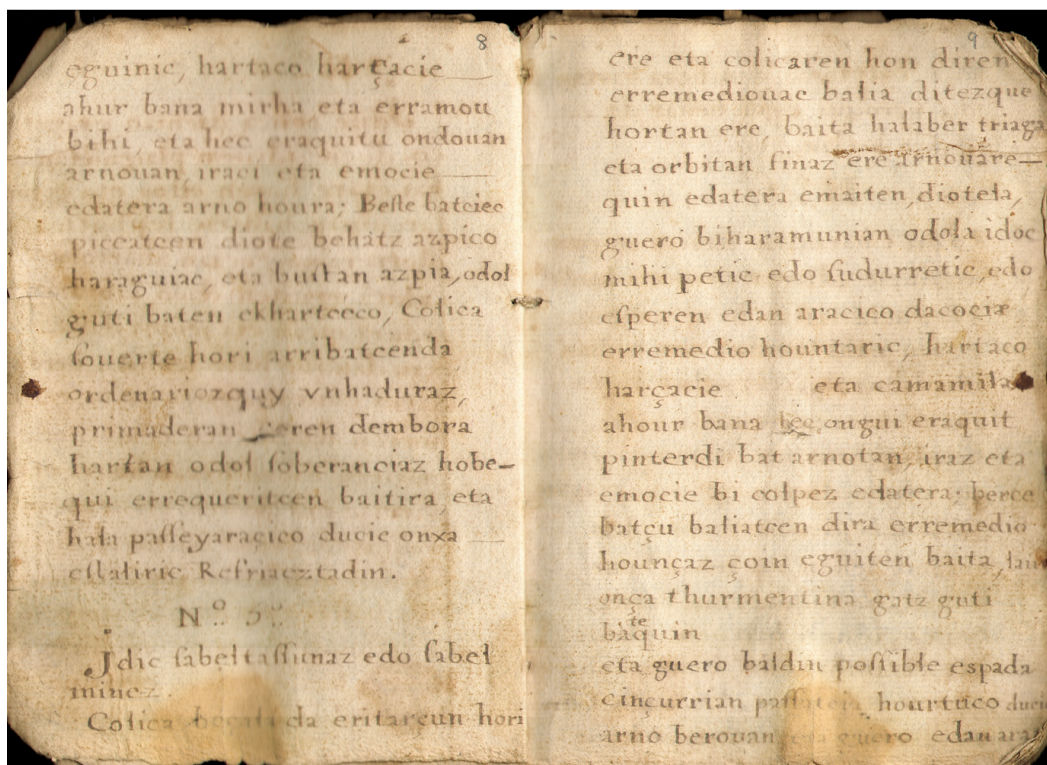 8
eguinic, hartaco harçacie
ahur bana mirha eta erramou
bihi, eta hec eraquitu ondouan
arnouan, iraci eta emocie
edatera arno houra; Beste batciec
piccatcen diote behatz azpico
haraguiac, eta bustan azpia, odol
guti baten ekhartceco, Colica
souerte hori arribatcenda
ordenariozquy vnhaduraz,
primaderan ceren dembora
hartan odol soberanciaz hobe-
qui errequeritcen baitira, eta
hala passeyaracico ducie onxa
estaliric Refriaeztadin.
N.º 5.º
Jdic sabeltassunaz edo sabel
minez.
Colica da eritarçun hori
9
ere eta colicaren hon diren
erremediouac balia ditezque
hortan ere, baita halaber triaga
eta orbitan finaz ere arnouare-
quin edatera emaiten, diotela,
guero biharamunian odola idoc
mihi petic edo sudurretic, edo
esperen edan aracico dacociæ
erremedio hountaric, hartaco
harçacie eta camamila
ahour bana hec ongui eraquit
pinterdi bat arnotan, iraz eta
emocie bi colpez edatera; berce
batçu baliatcen dira erremedio
hounçaz çoin eguiten baita, lau
onça thurmentina gatz guti
batequin
eta guero baldin possible espada
cinçurrian hourtaco ducie
arno berouan eta guero edan ara